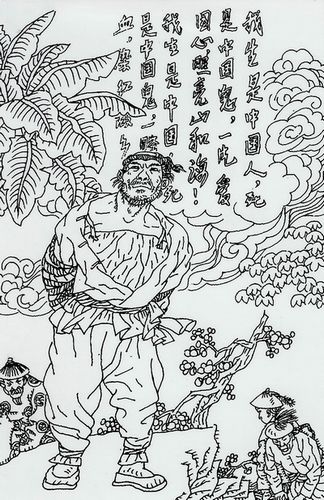 我生是中国人,死
是中国鬼,一片爱
国心照亮山和海!
我生是中国
是中国鬼,一腔
血,染红